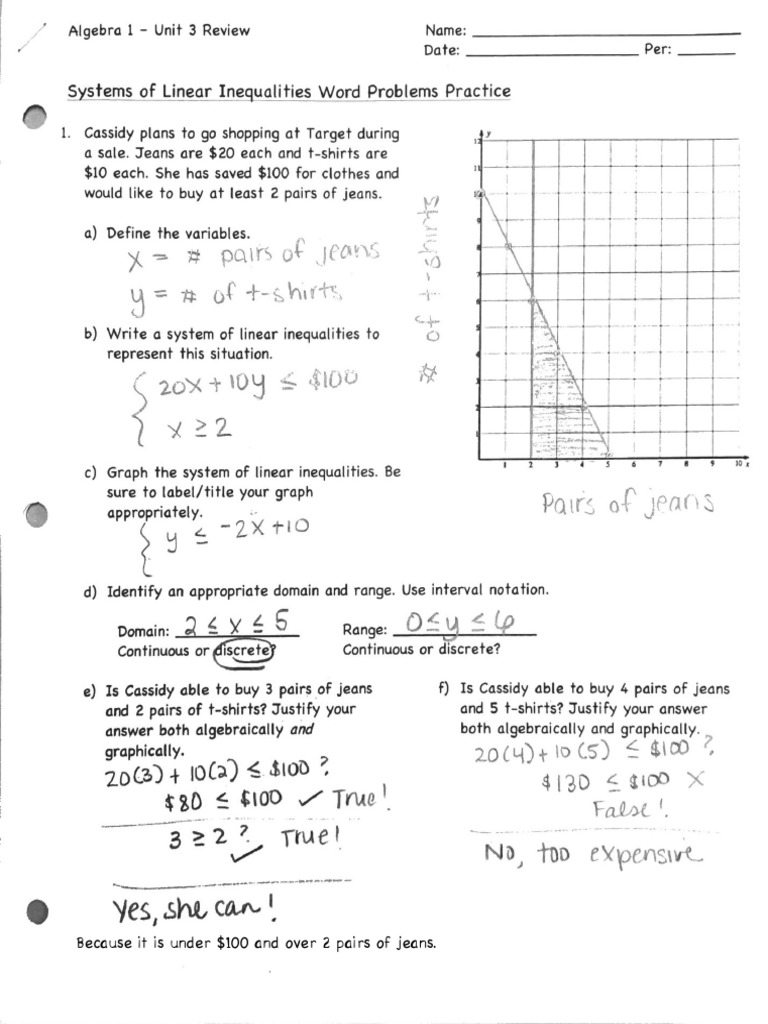 Algebra 1 – Unit 3 Review
Name: ____
Date: ____ Per: ____
Systems of Linear Inequalities Word Problems Practice
1. Cassidy plans to go shopping at Target during
a sale. Jeans are $20 each and t-shirts are
$10 each. She has saved $100 for clothes and
would like to buy at least 2 pairs of jeans.
a) Define the variables.
x = # pairs of jeans
y = # of t-shirts
b) Write a system of linear inequalities to
represent this situation.
20x + 10y ≤ $100
x ≥ 2
c) Graph the system of linear inequalities. Be
sure to label/title your graph
appropriately.
y ≤ -2x + 10
y
12
11
10
9
8
7
6
5
4
3
2
1
1 2 3 4 5 6 7 8 9 10 x
# of t-shirts
Pairs of jeans
d) Identify an appropriate domain and range. Use interval notation.
Domain: 2 ≤ x ≤ 5 Range: 0 ≤ y ≤ 6
Continuous or discrete? Continuous or discrete?
e) Is Cassidy able to buy 3 pairs of jeans
and 2 pairs of t-shirts? Justify your
answer both algebraically and
graphically.
20(3) + 10(2) ≤ $100 ?
$80 ≤ $100 ✓ True!
3 ≥ 2 ? ✓ True!
Yes, she can!
Because it is under $100 and over 2 pairs of jeans.
f) Is Cassidy able to buy 4 pairs of jeans
and 5 t-shirts? Justify your answer
both algebraically and graphically.
20(4) + 10(5) ≤ $100 ?
$130 ≤ $100 X
False!
No, too expensive